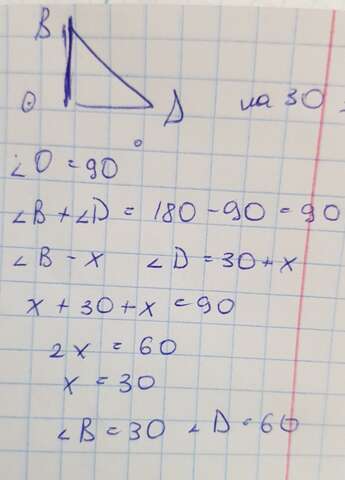 B
O D на 30
∠O = 90°
∠B + ∠D = 180 - 90 = 90
∠B - x ∠D = 30 + x
x + 30 + x = 90
2x = 60
x = 30
∠B = 30 ∠D = 60